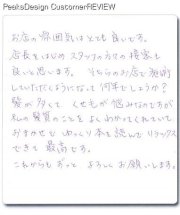 PeeksDesign CustomerREVIEW
お店の雰囲気はとても良いです。
店長をはじめスタッフの方々の接客も
良いと思います。そちらのお店で施術
していただくようになって何年でしょうか？
髪が多くて くせ毛が悩みなのですが
私の髪質のことをよくわかってくれていて
おまかせで ゆっくり本を読んでリラックス
できて最高です。
これからもずっと よろしくお願いします。